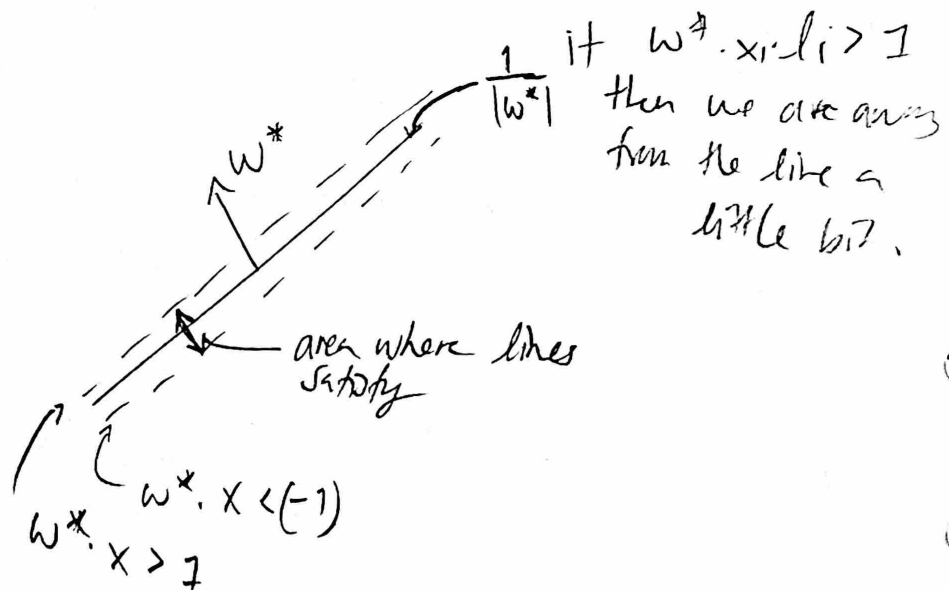 1/|w*|
if w* · xi · li > 1
then we are away
from the line a
little bit.
w*
area where lines
satisfy
w* · x < (-1)
w* · x > 1